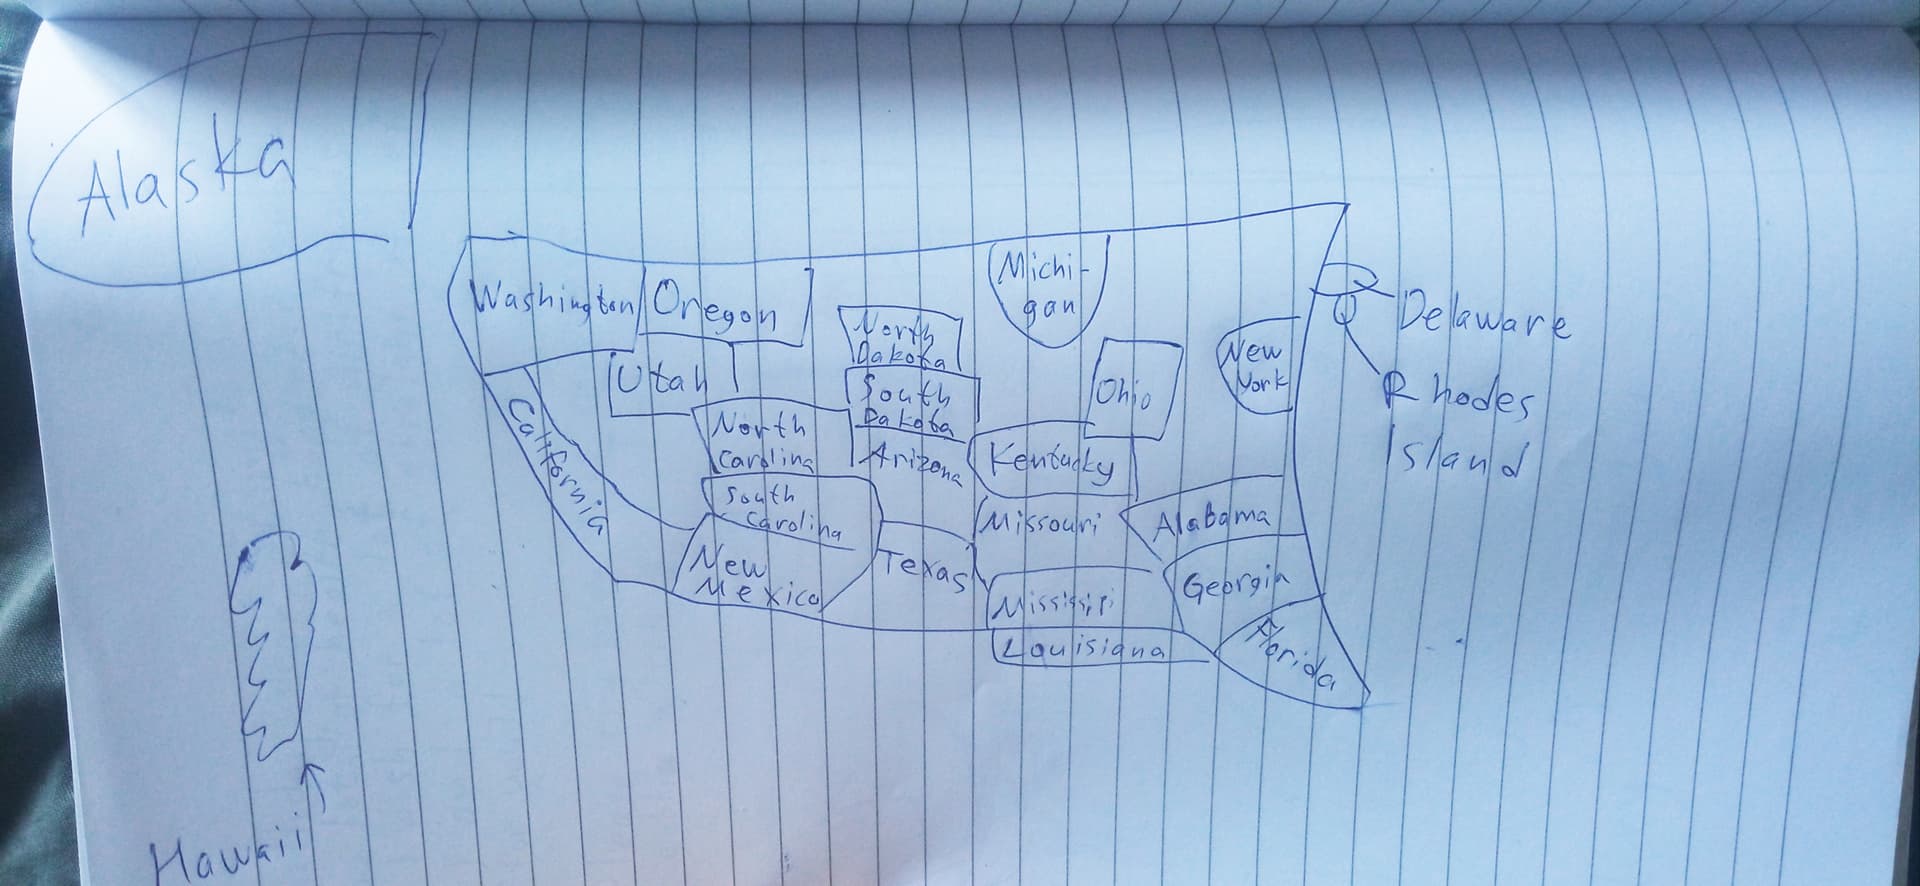 Alaska
Washington
Oregon
Michi-
gan
North
Dakota
Delaware
Utah
South
Dakota
Ohio
New
York
Rhodes
Island
California
North
Carolina
Arizona
Kentucky
South
Carolina
Missouri
Alabama
New
Mexico
Texas
Mississipi
Georgia
Louisiana
Florida
Hawaii